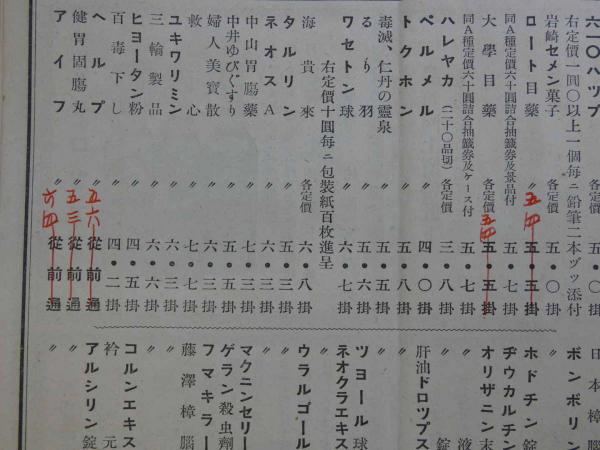 六一〇ハツプ 〃 五・〇掛
右定價一圓〇以上一個每ニ鉛筆二本ヅヽ添付
岩崎セメン菓子 〃 五・〇掛
ロート目藥 〃 五・五掛 五四
同A種定價六十圓詰合抽籤券及景品付 五・七掛
大學目藥 各定價 五・五掛 五四
同A種定價六十圓詰合抽籤券及ケース付 五・七掛
ハレヤカ(二十〇品切) 各定價 三・八掛
ベルメル 〃 四・〇掛
トクホン 〃 五・八掛
毒滅、仁丹の靈泉 〃 五・五掛
るり羽 〃 五・六掛
ワセトン球 〃 六・七掛
右定價十圓每ニ包裝紙百枚進呈
海貴來 各定價 六・八掛
タルリン 〃 五・三掛
ネオスA 〃 六・三掛
中山胃膓藥 〃 七・三掛
中井ゆびぐすり 〃 五・五掛
婦人美寶散 〃 六・三掛
救心 〃 七・七掛
ユキワリミン 〃 六・三掛
三輪製品 〃 六・六掛
ヒヨータン粉 〃 六・三掛
百毒下し 〃 四・二掛
ヘルプ 〃 從前通 五六
健胃固膓丸 〃 從前通 五三
アイフ 〃 從前通 六四
日本樟腦
ボンボリン
〃
ホドチン錠
ヂウカルチン
オリザニン末
〃 液
〃 錠
肝油ドロツプス
〃
〃
ツヨール球
ネオクラエキス
〃
ウラルゴール
〃
〃
マクニンセリー
ゲラン殺虫劑
フマキラー
藤澤樟腦
〃
コルンエキス
〃
衿元
アルシリン錠